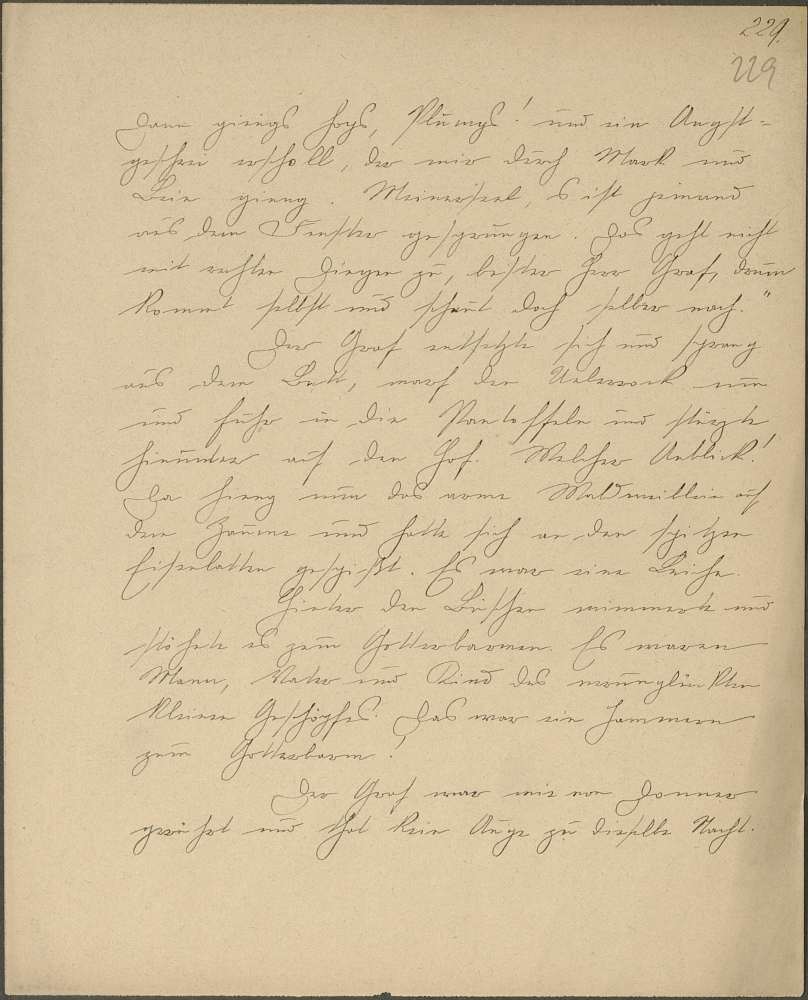 229.
229
Dann giengs hops, Plumps! und ein Angst-
geschrei erscholl, der mir durch Mark und
Bein gieng. Meinerseel, s ist jemand
aus dem Fenster gesprungen. Das geht nicht
mit rechten Dingen zu, bester Herr Graf, drum
kommt selbst und schaut doch selber nach."
Der Graf entsetzte sich und sprang
aus dem Bett, warf den Ueberrock um
und fuhr in die Pantoffeln und stürzte
hinunter auf den Hof. Welcher Anblick!
Da hieng nun das arme Waldweiblein auf
dem Zaune und hatte sich an den spitzen
Eisenlatten gespißt. Es war eine Leiche.
Hinter den Büschen wimmerte und
stöhnte es zum Gotterbarmen. Es waren
Mann, Vater und Kind des verunglückten
kleinen Geschöpfes. Das war ein Jammern
zum Gotterbarm!
Der Graf war wie von Donner
gerührt und that kein Auge zu dieselbe Nacht.